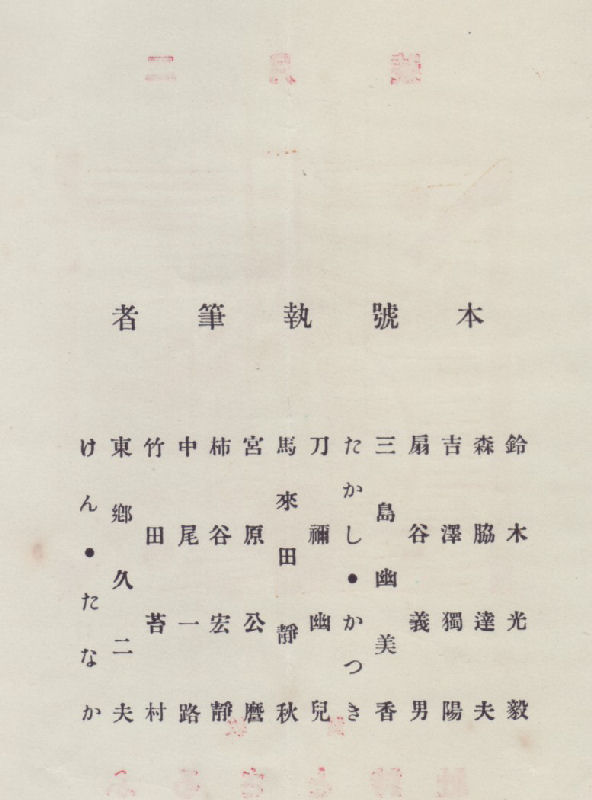 本號執筆者
鈴木光毅
森脇達夫
吉澤獨陽
扇谷義男
三島幽美香
たかし・かつき
刀禰幽兒
馬來田靜秋
宮原公麿
柿谷宏靜
中尾一路
竹田苔村
東鄉久二夫
けん・たなか